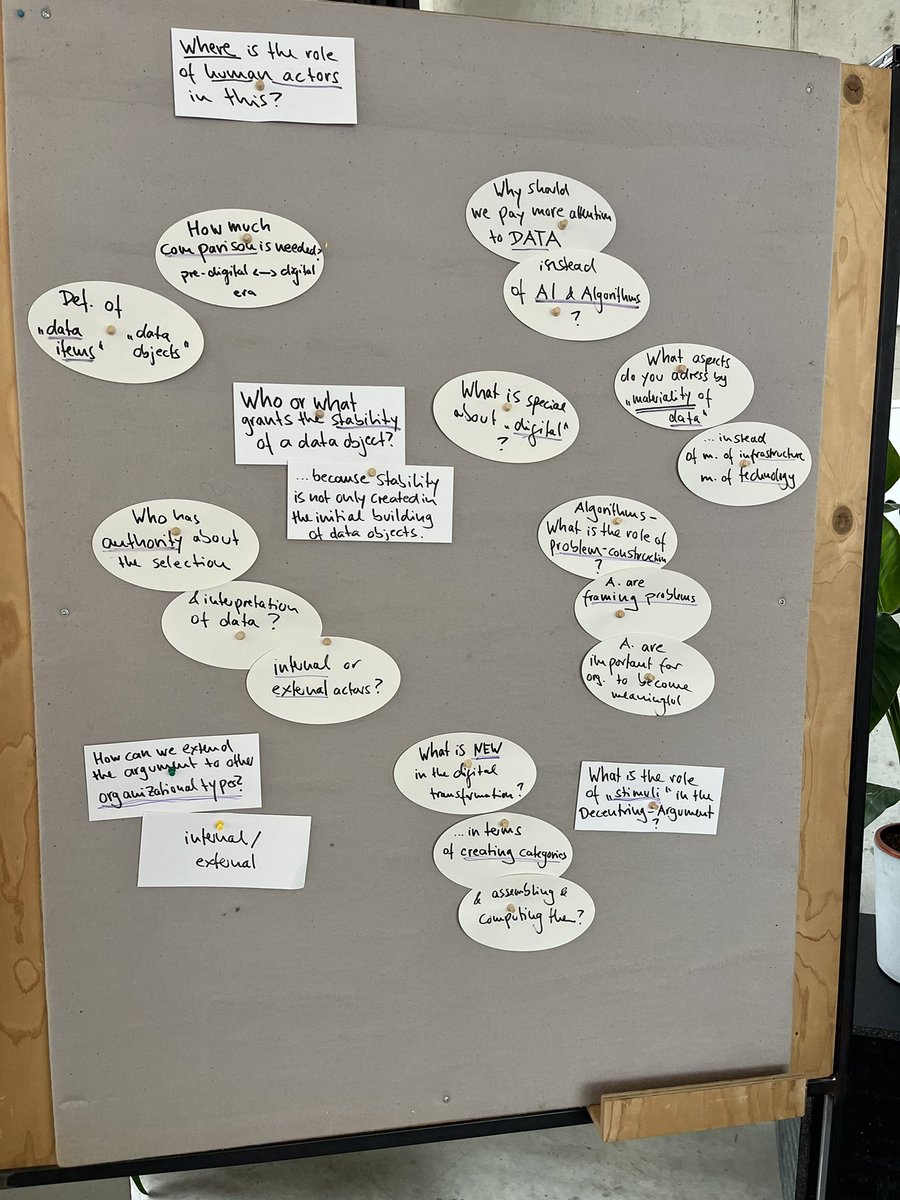 Where is the role
of human actors
in this?
How much
comparison is needed?
pre-digital <-> digital
era
Def. of
„data items“ „data objects“
Why should
we pay more attention
to DATA
instead
of AI & Algorithms
?
Who or what
grants the stability
of a data object?
...because stability
is not only created in
the initial building
of data objects.
What is special
about „digital“
?
What aspects
do you adress by
„materiality of
data“
...instead
of m. of infrastructure
m. of technology
Who has
authority about
the selection
& interpretation
of data?
internal or
external actors?
Algorithms-
What is the role of
problem-construction
?
A. are
framing problems
A. are
important for
org. to become
meaningful
How can we extend
the argument to other
organizational types?
internal/
external
What is NEW
in the digital
transformation?
...in terms
of creating categories
& assembling &
computing them?
What is the role
of „stimuli“ in the
Decentring-Argument
?